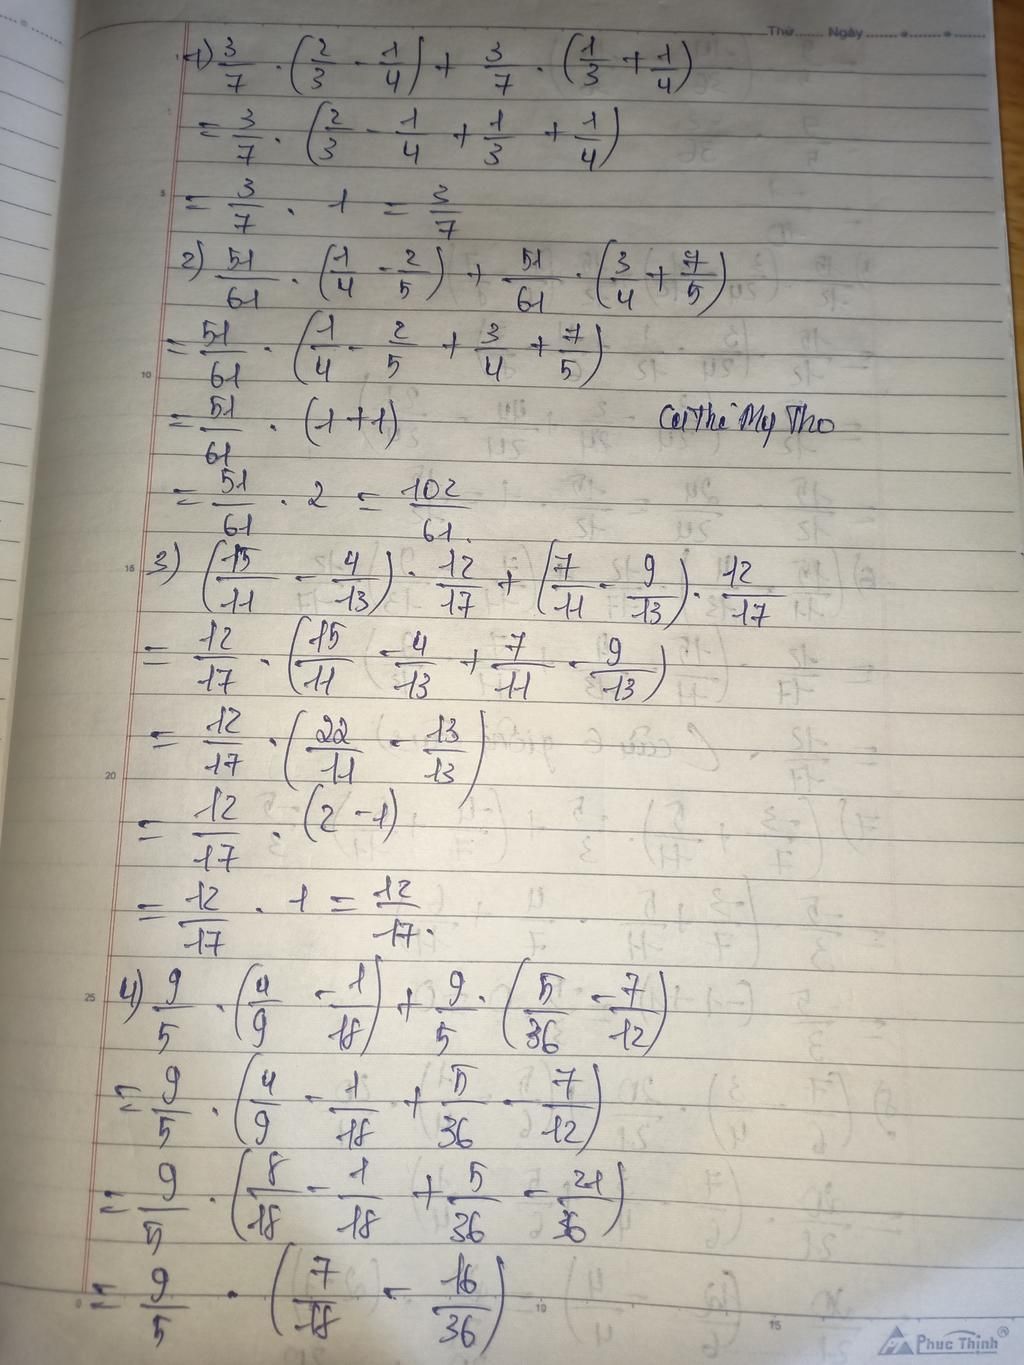 Thứ...... Ngày..................
1) 3/7 · (2/3 - 1/4) + 3/7 · (1/3 + 1/4)
= 3/7 · (2/3 - 1/4 + 1/3 + 1/4)
5
= 3/7 · 1 = 3/7
2) 51/61 · (1/4 - 2/5) + 51/61 · (3/4 + 7/5)
= 51/61 · (1/4 - 2/5 + 3/4 + 7/5)
10
= 51/61 · (1+1)
= 51/61 · 2 = 102/61.
15
3) (15/11 - 4/13) · 12/17 + (7/11 - 9/13) · 12/17
= 12/17 · (15/11 - 4/13 + 7/11 - 9/13)
= 12/17 · (22/11 - 13/13)
20
= 12/17 · (2 - 1)
= 12/17 · 1 = 12/17.
25
4) 9/5 · (4/9 - 1/18) + 9/5 · (5/36 - 7/12)
= 9/5 · (4/9 - 1/18 + 5/36 - 7/12)
= 9/5 · (8/18 - 1/18 + 5/36 - 21/36)
= 9/5 · (7/18 - 16/36)
0 10 15
Phuc Thinh®